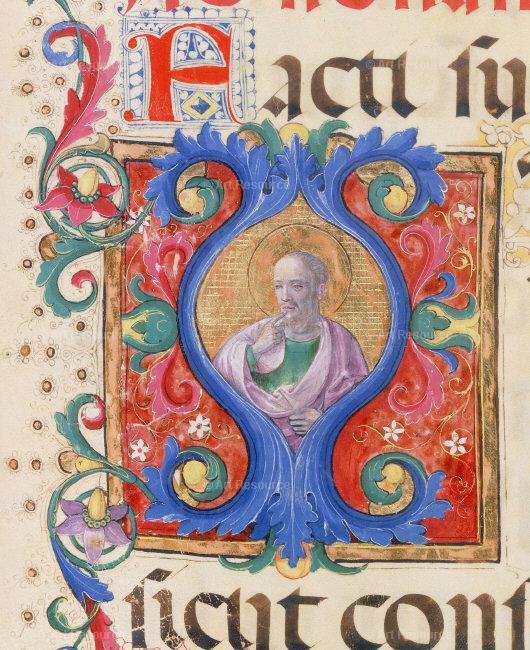 Facti ſu
ſicut conſ
© Art Resource